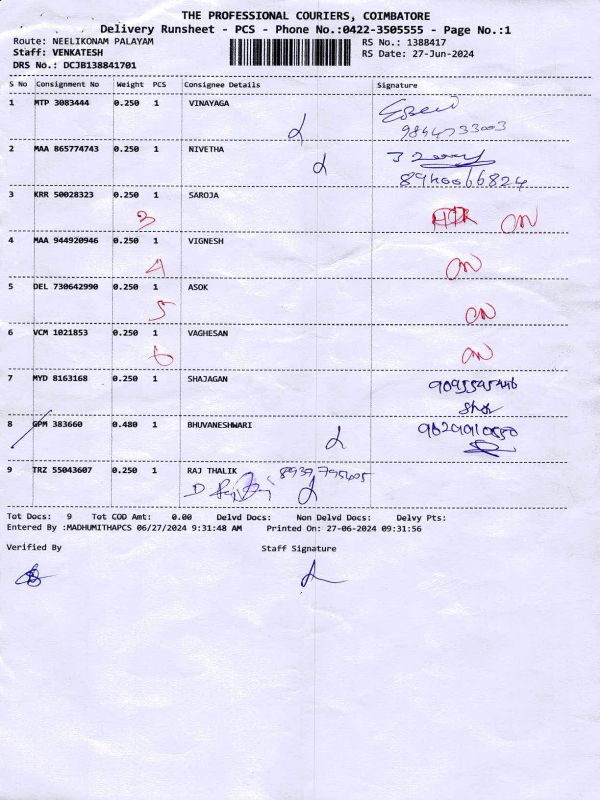 THE PROFESSIONAL COURIERS, COIMBATORE
Delivery Runsheet - PCS - Phone No.:0422-3505555 - Page No.:1
Route: NEELIKONAM PALAYAM
RS No.: 1388417
Staff: VENKATESH
RS Date: 27-Jun-2024
DRS No.: DCJB138841701
S No Consignment No Weight PCS Consignee Details Signature
1 MTP 3083444 0.250 1 VINAYAGA
2 MAA 865774743 0.250 1 NIVETHA
8940066824
3 KRR 50028323 0.250 1 SAROJA
3 ON
4 MAA 944920946 0.250 1 VIGNESH
4 ON
5 DEL 730642990 0.250 1 ASOK
5 ON
6 VCM 1021853 0.250 1 VAGHESAN
6 ON
7 MYD 8163168 0.250 1 SHAJAGAN
8 GPM 383660 0.480 1 BHUVANESHWARI
9 TRZ 55043607 0.250 1 RAJ THALIK
Tot Docs: 9 Tot COD Amt: 0.00 Delvd Docs: Non Delvd Docs: Delvy Pts:
Entered By :MADHUMITHAPCS 06/27/2024 9:31:48 AM Printed On: 27-06-2024 09:31:56
Verified By Staff Signature